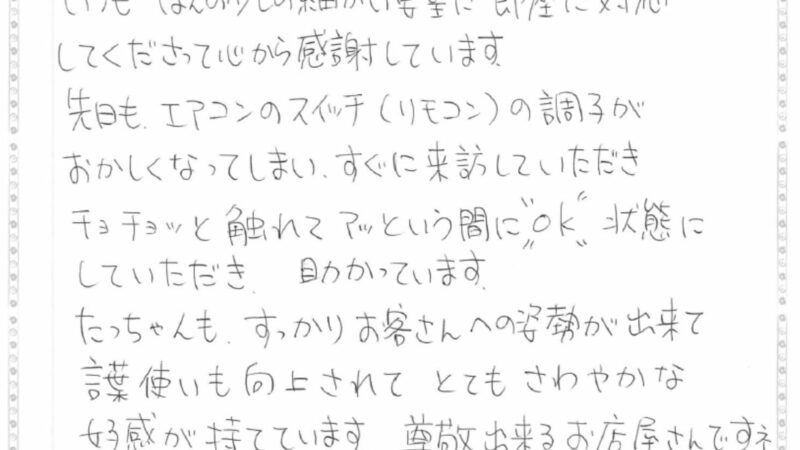 いつも ほんの少しの細かい要望に 即座に対応
してくださって心から感謝しています。
先日も、エアコンのスイッチ（リモコン）の調子が
おかしくなってしまい、すぐに来訪していただき
チョチョッと触れて アッという間に"OK"状態に
していただき、助かっています。
たっちゃんも、すっかりお客さんへの姿勢が出来て
言葉使いも向上されて とても さわやかな
好感が持てています。尊敬出来るお店屋さんですネ